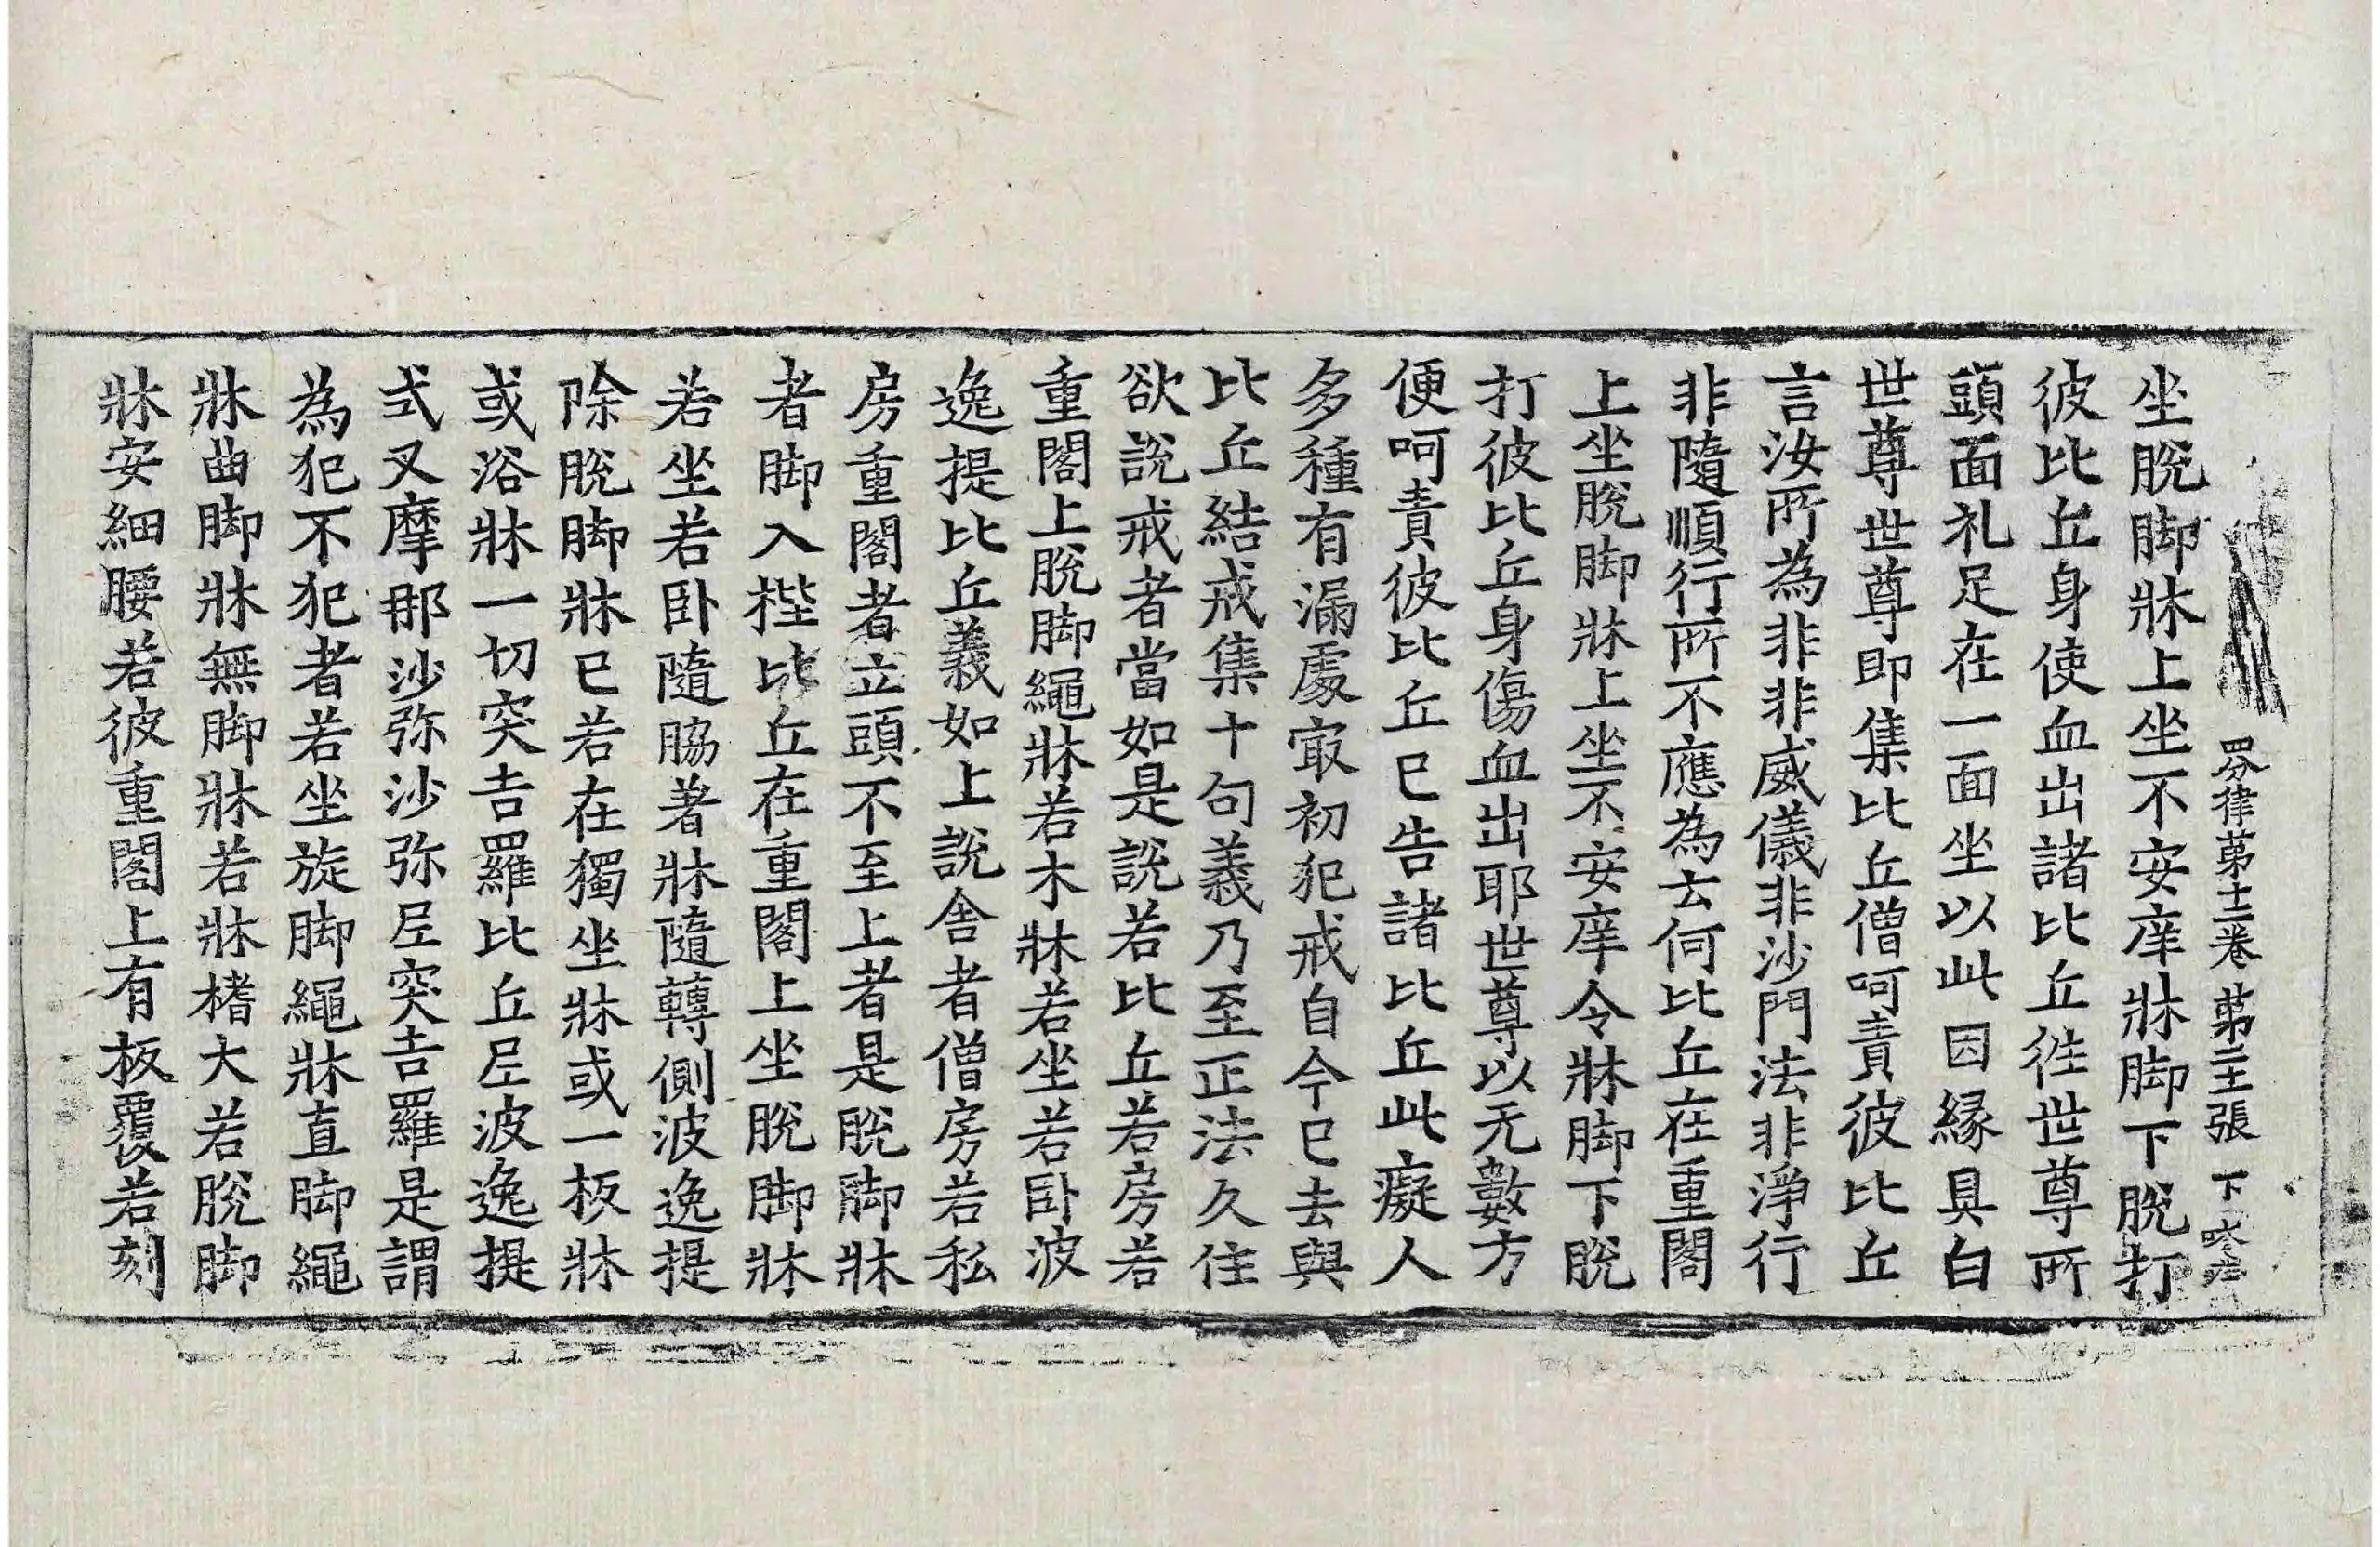 四分律第十二卷 第二十張 下
坐脫脚牀上坐不安庠牀脚下脫打
彼比丘身使血出諸比丘往世尊所
頭面礼足在一面坐以此因縁具白
世尊世尊即集比丘僧呵責彼比丘
言汝所為非非威儀非沙門法非淨行
非隨順行所不應為云何比丘在重閣
上坐脫脚牀上坐不安庠令牀脚下脫
打彼比丘身傷血出耶世尊以无數方
便呵責彼比丘已告諸比丘此癡人
多種有漏處㝡初犯戒自今已去與
比丘結戒集十句義乃至正法久住
欲說戒者當如是說若比丘若房若
重閣上脫脚繩牀若木牀若坐若卧波
逸提比丘義如上說舍者僧房若私
房重閣者立頭不至上者是脫脚牀
者脚入梐比丘在重閣上坐脫脚牀
若坐若卧隨脇著牀隨轉側波逸提
除脫脚牀已若在獨坐牀或一板牀
或浴牀一切突吉羅比丘尼波逸提
式叉摩那沙弥沙弥尼突吉羅是謂
為犯不犯者若坐旋脚繩牀直脚繩
牀曲脚牀無脚牀若牀榰大若脫脚
牀安細腰若彼重閣上有板覆若刻